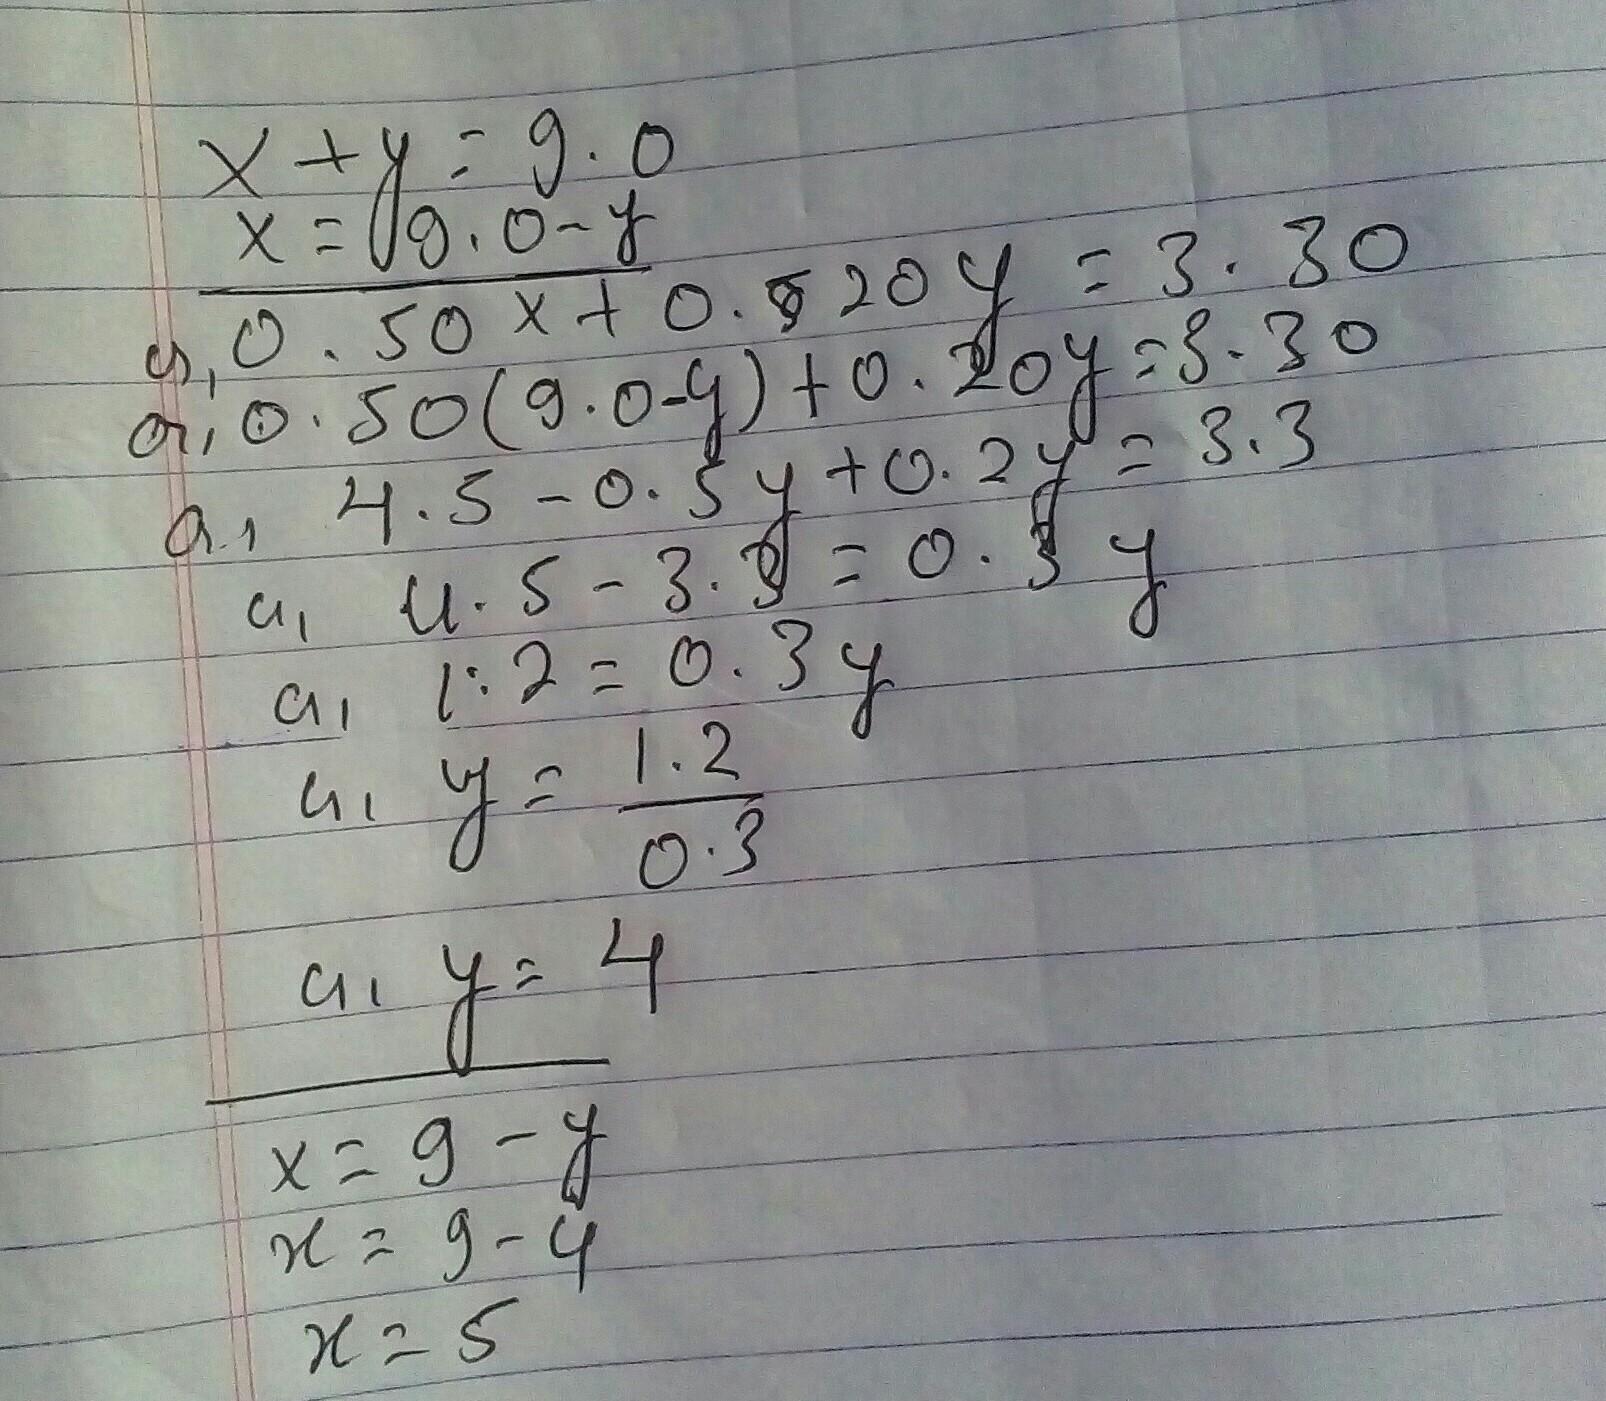 x + y = 9.0
x = 9.0 - y
or, 0.50 x + 0.20 y = 3.30
or, 0.50 (9.0 - y) + 0.20 y = 3.30
or, 4.5 - 0.5 y + 0.2 y = 3.3
or, 4.5 - 3.3 = 0.3 y
or, 1.2 = 0.3 y
or, y = 1.2 / 0.3
or, y = 4
x = 9 - y
x = 9 - 4
x = 5